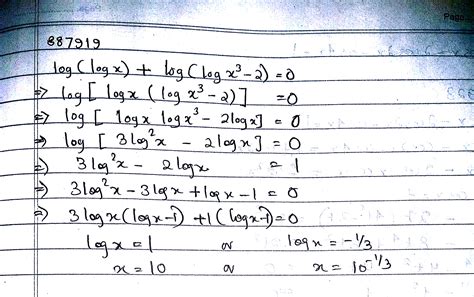 Page
887919
log(log x) + log(log x³ - 2) = 0
⇒ log [ log x (log x³ - 2) ] = 0
⇒ log [ log x log x³ - 2 log x ] = 0
⇒ log [ 3 log² x - 2 log x ] = 0
⇒ 3 log² x - 2 log x = 1
⇒ 3 log² x - 3 log x + log x - 1 = 0
⇒ 3 log x (log x - 1) + 1 (log x - 1) = 0
log x = 1 or log x = -1/3
x = 10 or x = 10^-1/3